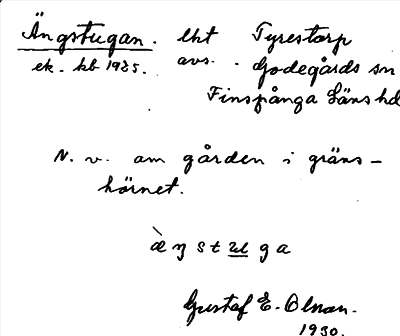 Ängstugan. lht Tyrestorp
ek. kb 1925. avs. Godegårds sn
Finspånga läns hd
N. v. om gården i gräns-
hörnet.
æ̀ŋstuga
Gustaf E. Olson.
1930.